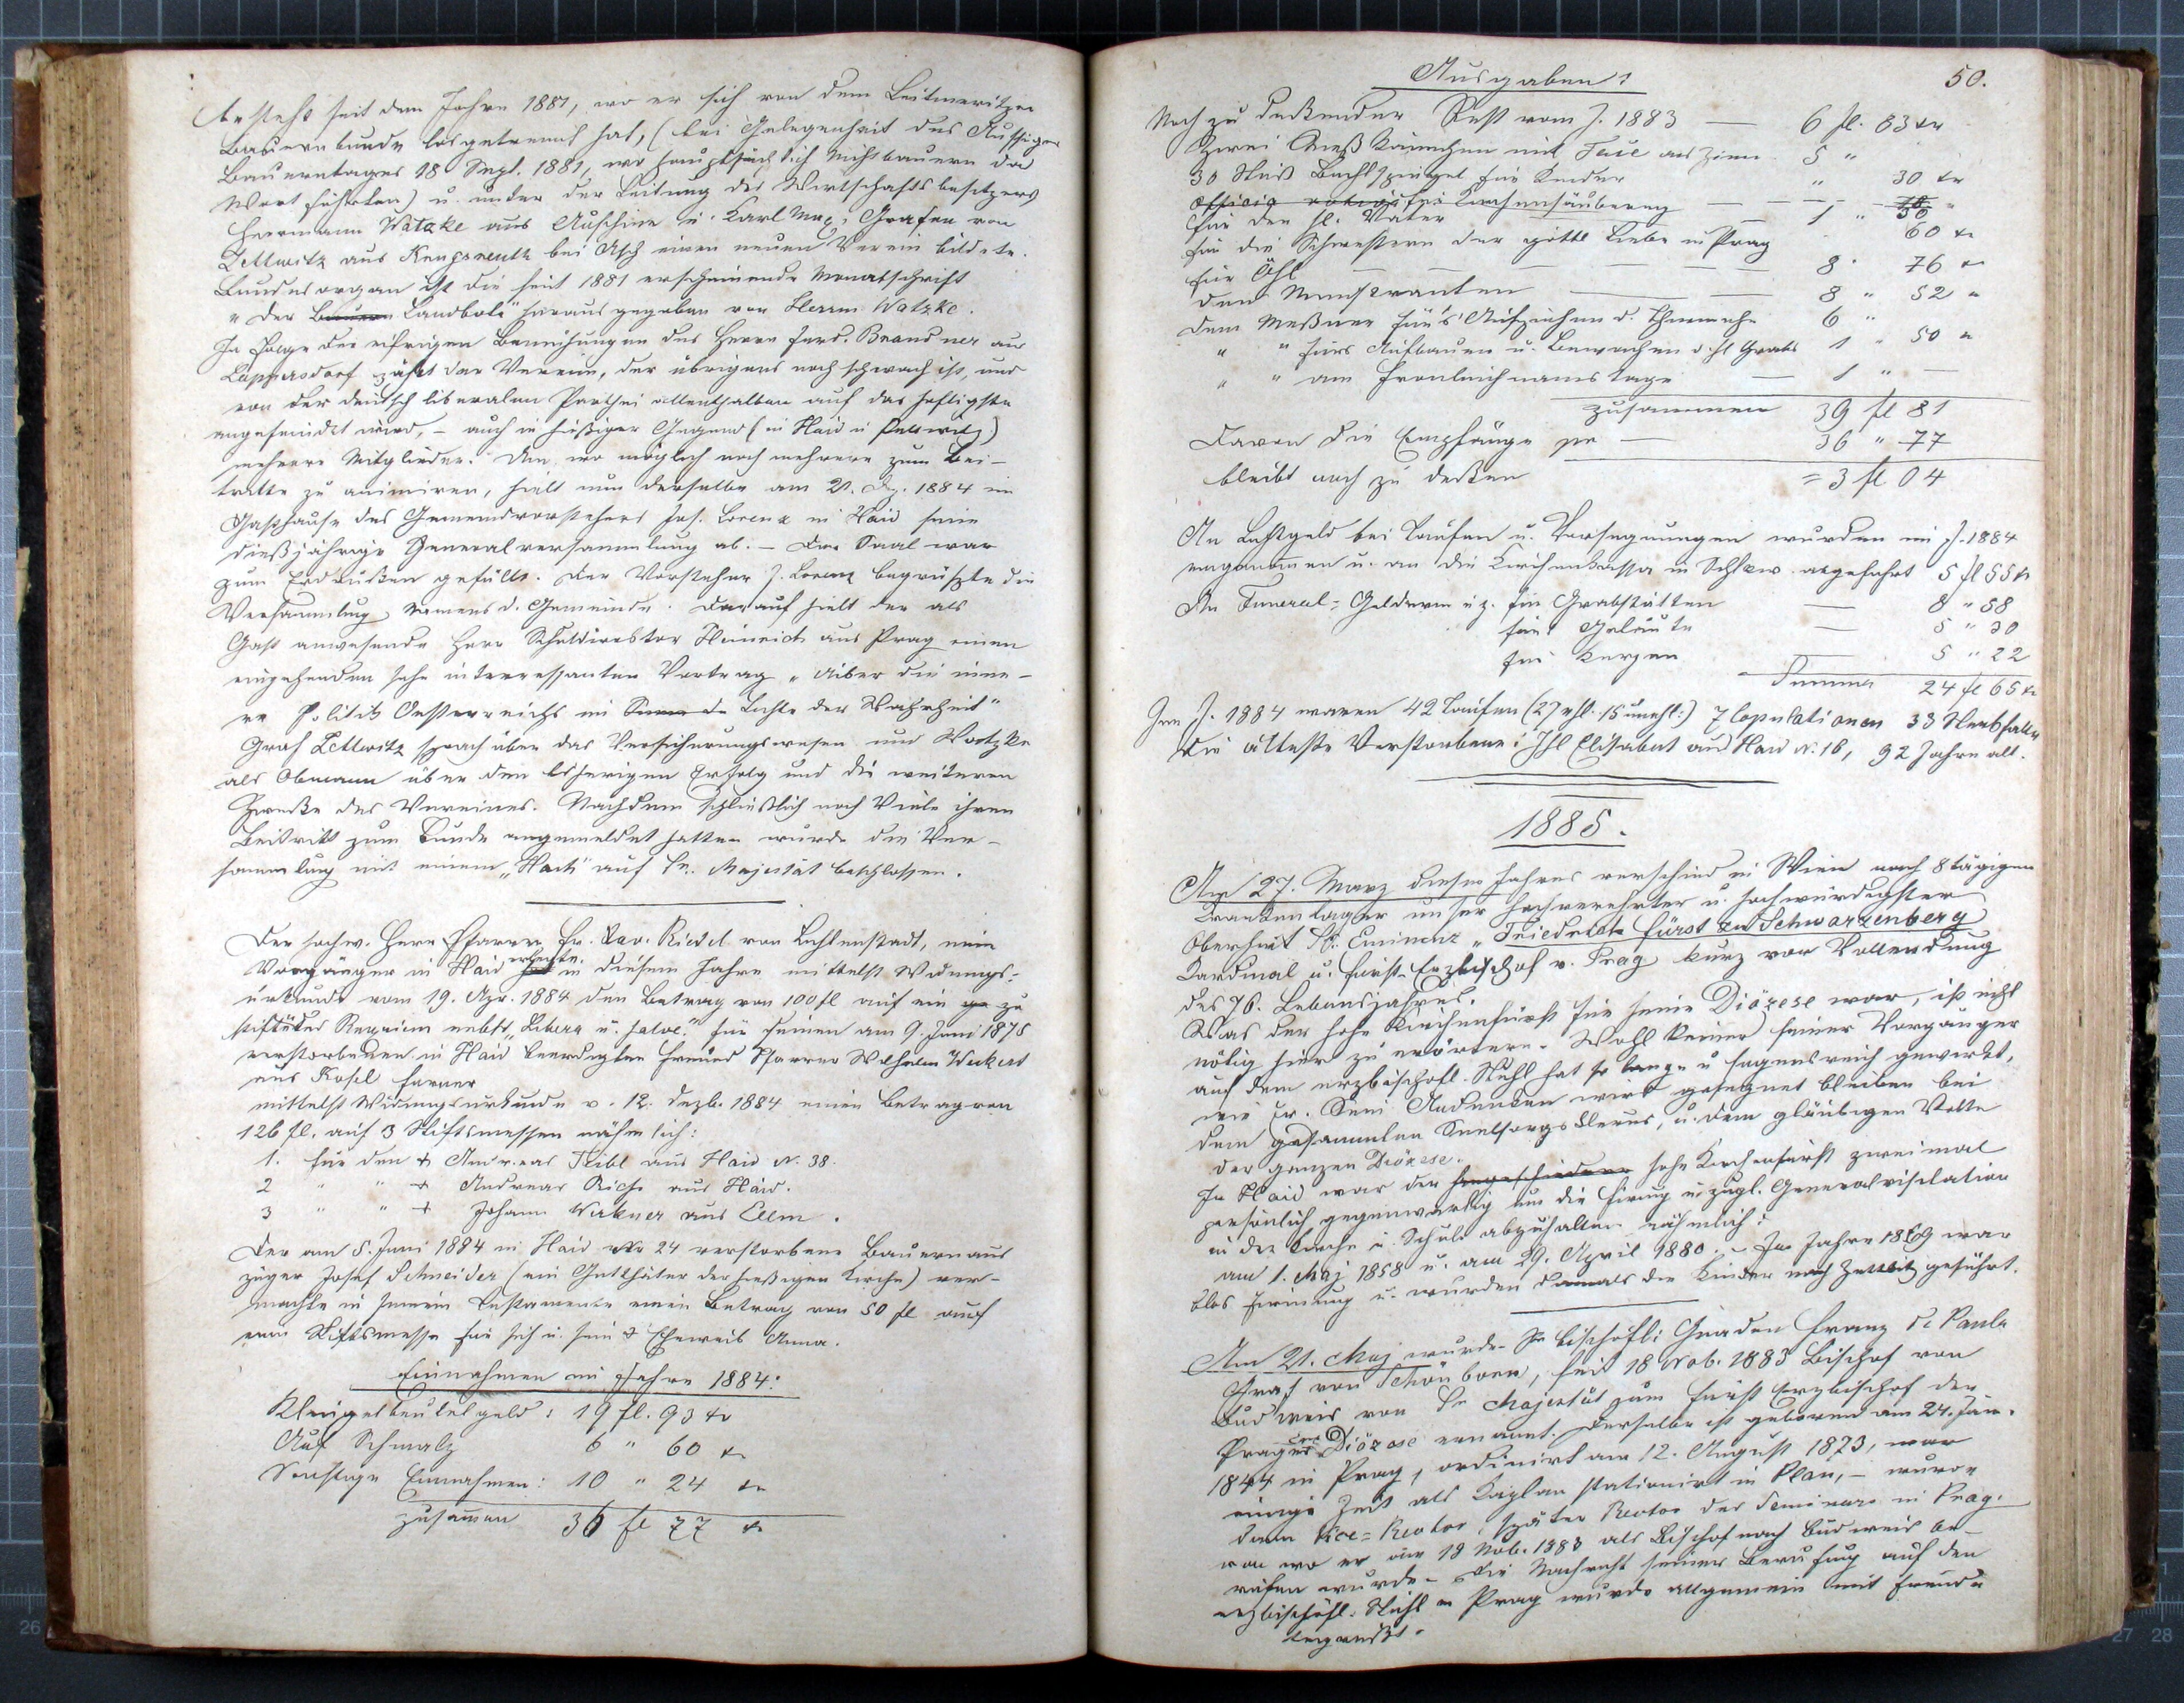 besteht seit dem Jahre 1881, wo er sich von dem Leitmeritzer
Bauernbunde losgetrennt hat, (bei Gelegenheit des Aussiger
Bauerntages 18 Sept. 1881, wo hauptsächlich Nichtbauern das
Wort führten) u. unter der Leitung des Wirtschaftsbesitzers
Herrmann Watzke aus Auschine u. Karl Max, Grafen von
Zettwitz aus Krugsreuth bei Asch einen neuen Verein bildete.
Bundesorgan ist die seit 1881 erscheinende Monatschrift
"Der Bauern Landbote" herausgegeben von Herrm Watzke.
In Folge der eifrigen Bemühungen des Herrn Ferd. Brandner aus
Lappersdorf zählt der Verein, der übrigens noch schwach ist, und
von der deutsch liberalen Parthei allenthalben auf das heftigste
angefeindet wird, – auch in hießiger Gegend (in Haid u
mehrere Mitglieder. Um, wo möglich noch mehrere zum Bei-
tritte zu animiren, hielt nun derselbe am 21. 1884 im
Gasthause des Gemeindvorstehers Jos. Lorenz in Haid seine
dießjährige Generalversammlung ab. – Der Saal war
zum Erdrücken gefüllt. Der Vorsteher J. Lorenz begrüßte die
Versammlung Namens d. Gemeinde. Darauf hielt der als
Gast anwesende Herr Schuldirektor Heinrich aus Prag einen
eingehenden sehr interressanten Vortrag "über die inne-
re Politik Oesterreichs im Sinne de Lichte der Wahrheit"
Graf Zettwitz sprach über das Versicherungswesen und Watzke
als Obmann über den bisherigen Erfolg und die weiteren
Zwecke des Vereines. Nachdem schließlich noch Viele ihren
Beitritt zum Bunde angemeldet hatten wurde die Ver-
sammlung mit einem "Hoch" auf Sr. Majestät beschlossen.
Der hochw. Herr Pfarrer Fr. Xav. Riedel von Lichtenstadt, mein
Vorgänger in Haid hat erlegte in diesem Jahre mittelst Widmungs-
urkunde vom 19. Apr. 1884 den Betrag von 100 fl auf ein ge zu
stiftendes Requiem nebst "Libera u. Salve" für seinen am 9. Juni 1875
verstorbenen in Haid beerdigten Freund Pfarrer Wilhelm Weikert
aus Kosel ferner
mittelst Widmungsurkunde v. 12. Dezb. 1884 einen Betrag von
126 fl. auf 3 Stiftsmessen nähmlich:
1. für den † Andreas Teibl aus Haid N. 38.
2 " " † Andreas Richt aus Haid.
3 " " † Johann Werkner aus Ellm.
Der am 5. Juni 1884 in Haid Nr 24 verstorbene Bauernaus
züger Josef Schneider (ein Gutthäter der hießigen Kirche) ver-
machte in seinem Testamente einen Betrag von 50 fl auf
eine Stiftsmesse für sich u. sein † Eheweib Anna.
Einnahmen im Jahre 1884:
Klingelbeutelgeld: 19 fl. 93 kr
Auf Schmalz 6 " 60 kr
Sonstige Einnahmen: 10 " 24 kr
zusammen 36 fl 77 kr
50.
Ausgaben:
Noch zu deckender Rest vom J. 1883 — 6 fl. 83 kr
Zwei Meßkännchen mit Tasse aus Zinn 5 "
30 Stück für Kinder " 30 kr
für Kirchensäuberung
für den hl. Vater 1 " 50
für die Schwestern der göttl Liebe in Prag 60 kr
für Öhl 8 " 76 "
dem Ministranten 8 " 52 "
dem Meßner für's Aufziehen d. Thurmuhr 6 "
" " fürs Aufbauen u. Bewachen d. hl Grabs 1 " 50 "
" " am Fronleichnamstage — 1 " —
zusammen 39 fl 81
Davon die Empfänge pr — 36 " 77
bleibt noch zu decken = 3 fl 04
An Lichtgeld bei Taufen u. Vorsegnungen wurden im J. 1884
eingenommen u. an die Kirchenkassa in abgeführt 5 fl 55 kr
An Funeral-Geldern u. z. für Grabstätten — 8 " 58
für Geläute — 5 " 30
für Kerzen — 5 " 22
Summe 24 fl 65 kr
Im J. 1884 waren 42 Taufen (27 ehl. 15 unehl:) 7 Copulationen 33 Sterbfälle
die älteste Verstorbene: Elisabet aus Haid N. 16, 92 Jahre alt.
1885.
Am 27. März dieses Jahres verschied in Wien nach 8tägigem
Krankenlager unser hochverehrter u. hochwürdigster
Oberhirt Sr. Eminenz "Friedrich Fürst zu Schwarzenberg
Kardinal u. Fürst-Erzbischof v. Prag kurz vor Vollendung
des 76. Lebensjahres.
Was der hohe Kirchenfürst für seine Diözese war, ist nicht
nötig hier zu erörtern. Wohl keiner seiner Vorgänger
auf dem erzbischöfl. Stuhl hat so lange u segensreich gewirkt,
wie er. Sein Andenken wird gesegnet bleiben bei
dem gesammten Seelsorgsklerus, u. dem gläubigen Volke
der ganzen Diözese.
In Haid war der hingeschiedene hohe Kirchenfürst zweimal
persönlich gegenwärtig um die Firmung u. zugl. Generalvisitation
in der Kirche u. Schule abzuhalten nähmlich:
am 1. Maj 1858 u. am 29. April 1880. – Im Jahre 1869 war
blos Firmung u. wurden damals die Kinder nach Zettlitz geführt.
Am 21. Maj wurde Sr bischöfl: Gnaden Franz de Paula
Graf von Schönborn, seit 18 Nob. 1883 Bischof von
Budweis von Sr Majestät zum Fürst Erzbischof der
Prager Diözese ernannt. Derselbe ist geboren am 24. Jän.
1844 in Prag, ordinirt am 12. August 1873, war
einige Zeit als Kaplan stationirt in Plan, – wurde
dann Vice-Rector, später Rector des Seminars in Prag.
von wo er am 18 Nob. 1883 als Bischof nach Budweis be-
rufen wurde. – Die Nachricht seiner Berufung auf den
erzbischöfl. Stuhl in Prag wurde allgemein mit Freude
begrüßt.
26
27 28